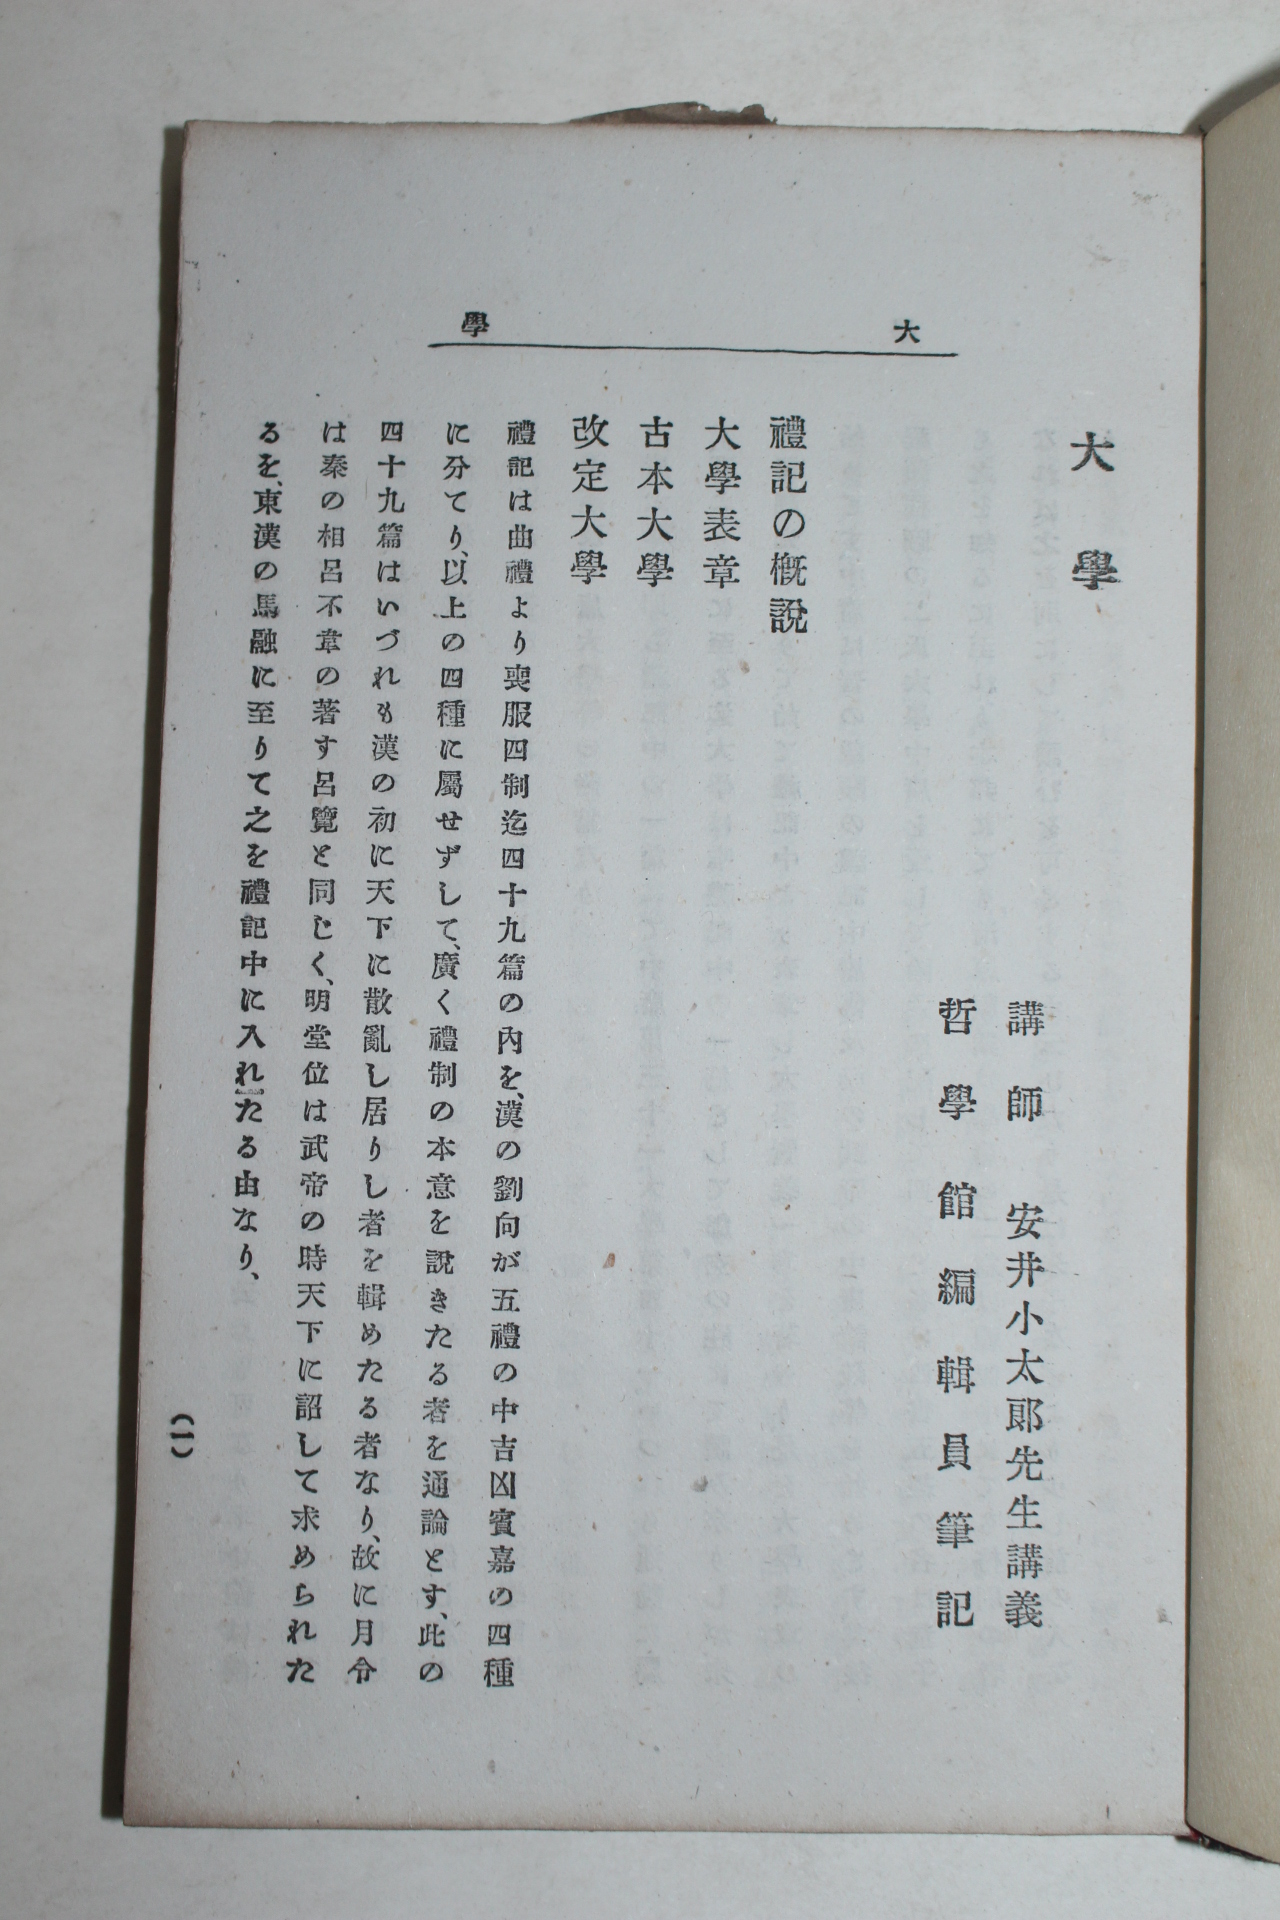 大學
大學
講師 安井小太郎先生講義
哲學館編輯員筆記
禮記の概說
大學表章
古本大學
改定大學
禮記は曲禮より喪服四制迄四十九篇の內を、漢の劉向が五禮の中吉凶賓嘉の四種
に分てり、以上の四種に屬せずして、廣く禮制の本意を說きたる者を通論とす、此の
四十九篇はいづれも漢の初に天下に散亂し居りし者を輯めたる者なり、故に月令
は秦の相呂不韋の著す呂覽と同じく、明堂位は武帝の時天下に詔して求められた
るを、東漢の馬融に至りて之を禮記中に入れたる由なり、
(一)